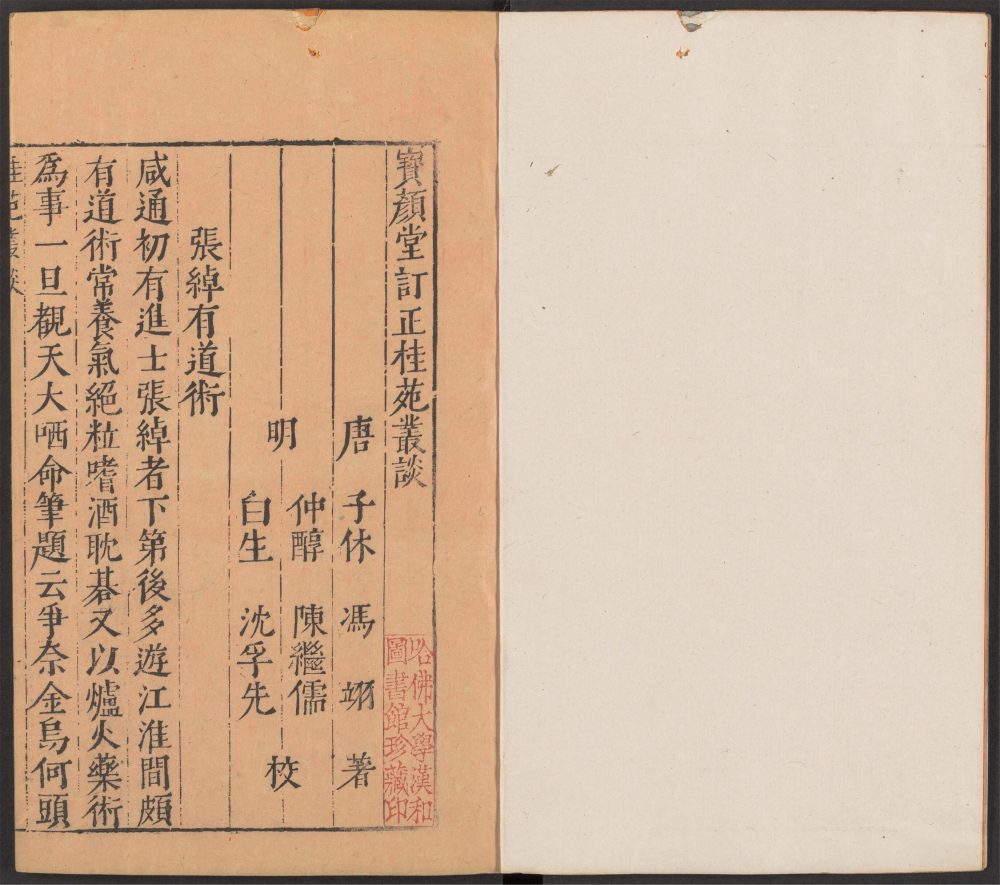 寳顏堂訂正桂苑叢談
唐 子休 馮翊 著
明 仲醇 陳繼儒
白生 沈孚先 校
張綽有道術
咸通初有進士張綽者下第後多遊江淮間頗
有道術常養氣絕粒嗜酒耽碁又以爐火藥術
爲事一旦覩天大哂命筆題云爭奈金烏何頭
桂苑叢談
哈佛大學漢和
圖書館珍藏印